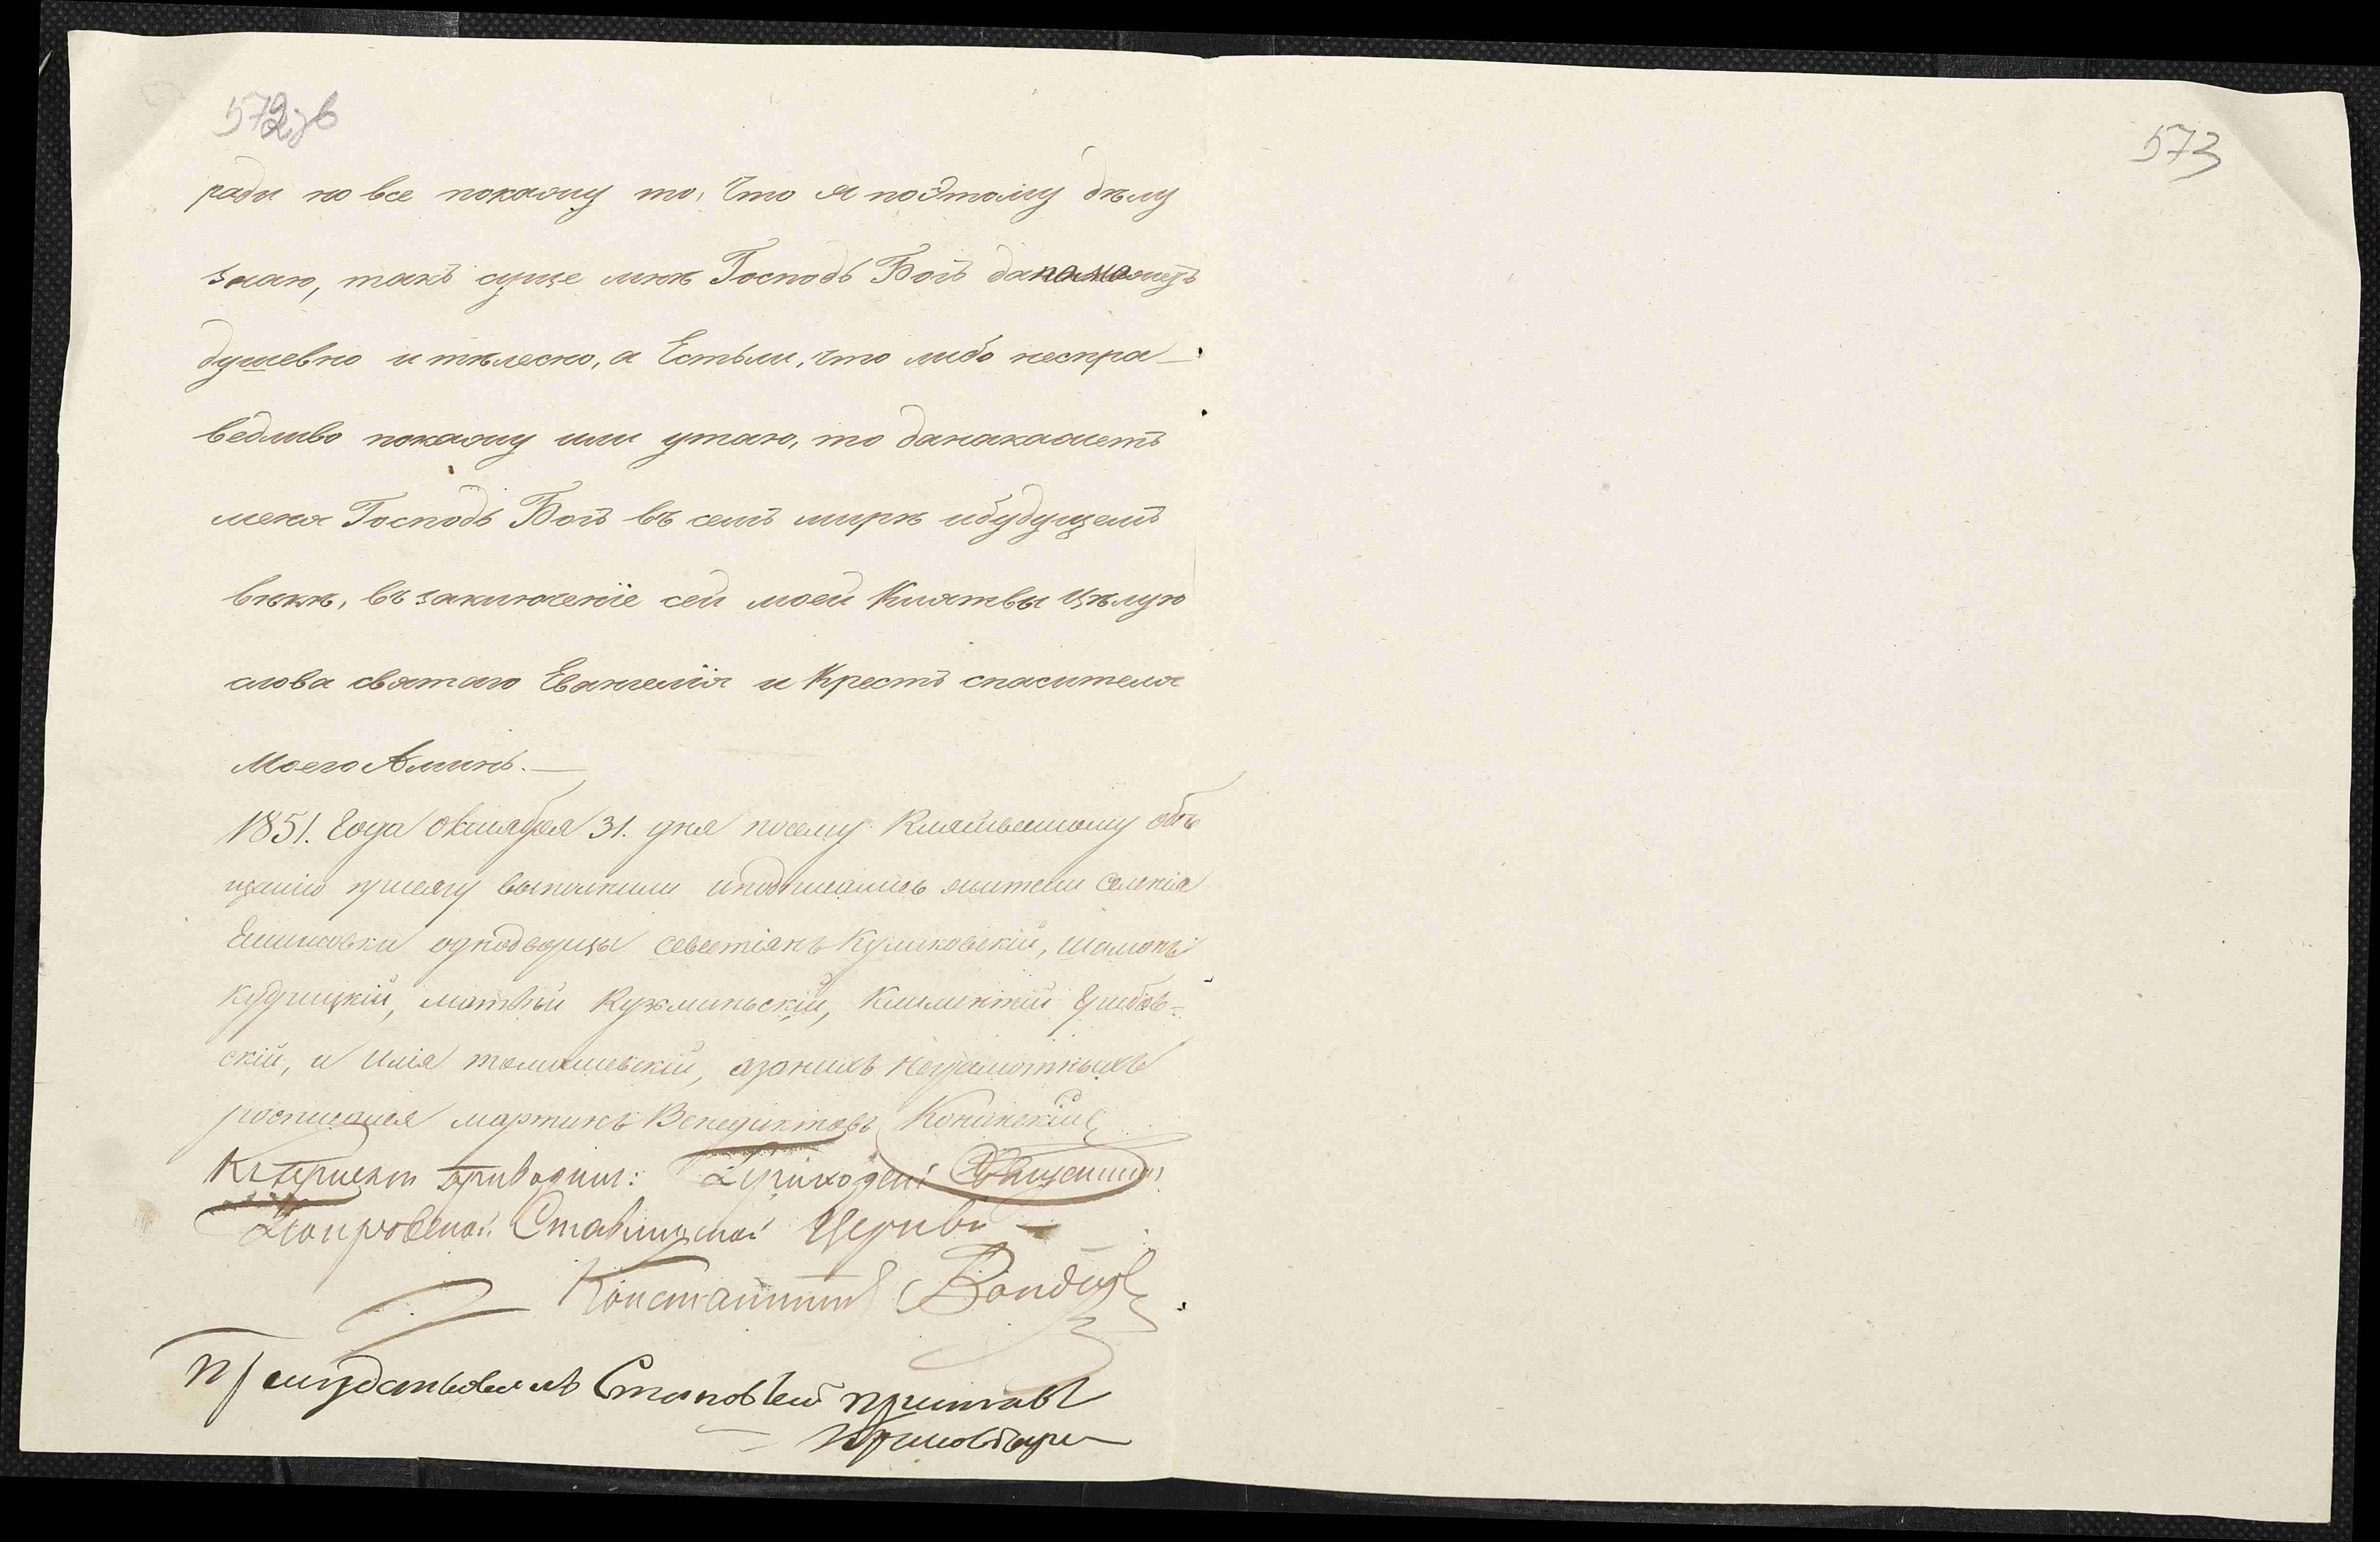 572 зв
573
ради но все покажу то, что я поэтому делу
знаю, такъ суще мнѣ Господь Богъ да поможетъ
душевно и тѣлесно, а Естьли, что либо неспра-
ведливо покажу или утаю, то данакажетъ
меня Господь Богъ въ семъ мирѣ ибудущемъ
вѣкѣ, въ заключеніе сей моей Клятвы Цѣлую
слова святаго Евангелія и Крестъ спасителя
Моего Аминь.—
1851. Года октября 31. дня посему Клятвенному обѣ
щанію присягу выполнили иподписались жители Селенія
однодворцы севестіянъ Куликовскій,
кудрицкій, матвѣй Кузминьскій, Климентій Грибов-
скій, и илія томашевскій, азанихъ неграмотныхъ
росписался мартинъ Венедиктовъ
Къ присягѣ приводилъ: Приходскій Священникъ
Покровской Ставищской Церкви
Константинъ
При Становый приставъ